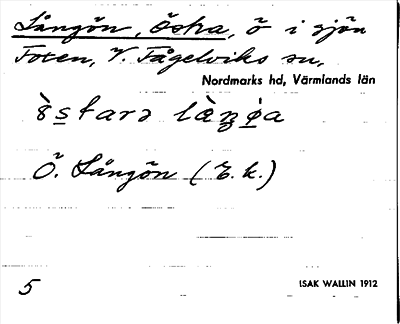 Långön, Östra, ö i sjön
Foxen, V. Fågelviks sn,
Nordmarks hd, Värmlands län
Ö. Långön (E. k.)
5
ISAK WALLIN 1912